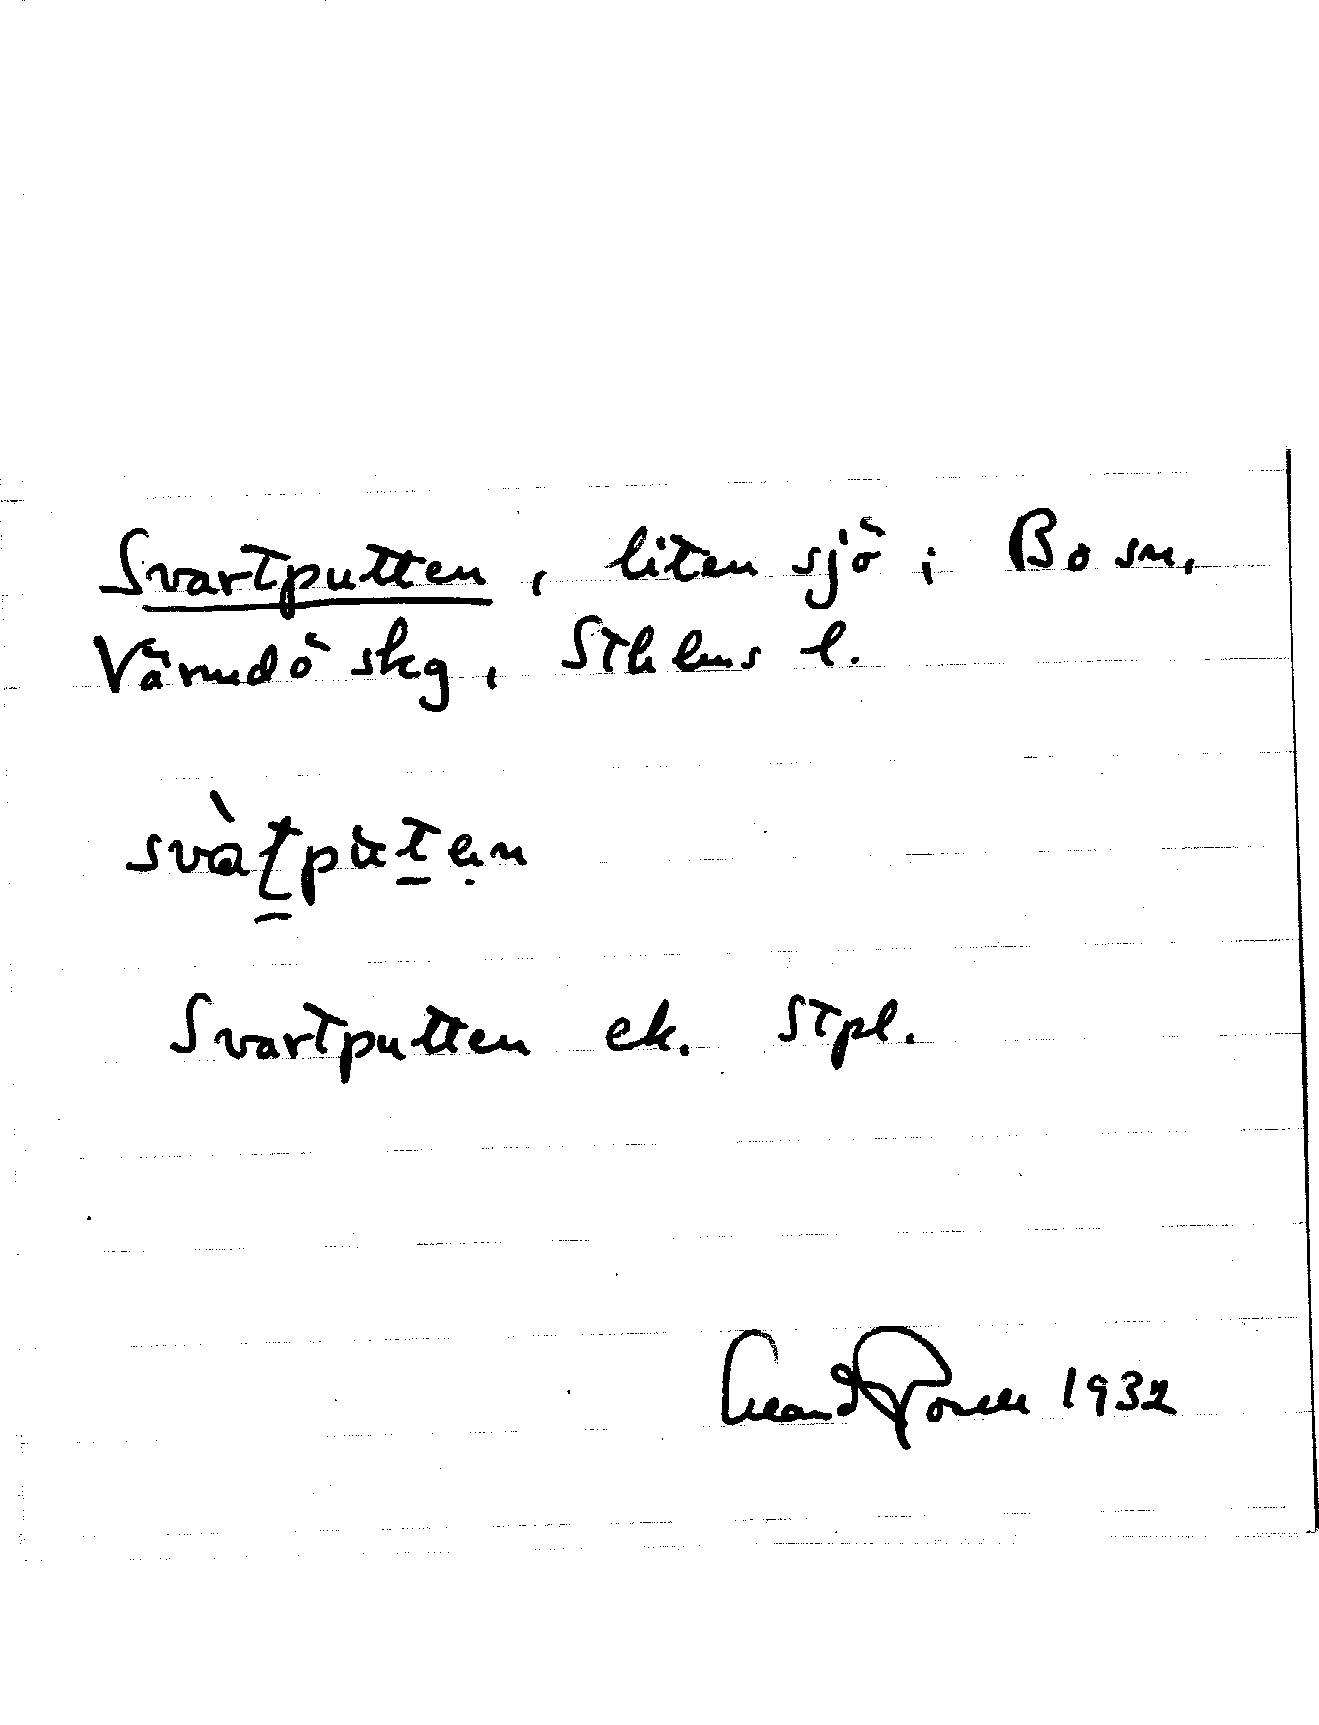 Svartputten, liten sjö i Bo sn,
Värmdö skg, Sthlms l.
svàt̠pùt̠ẹn
Svartputten ek. Stpl.
1932